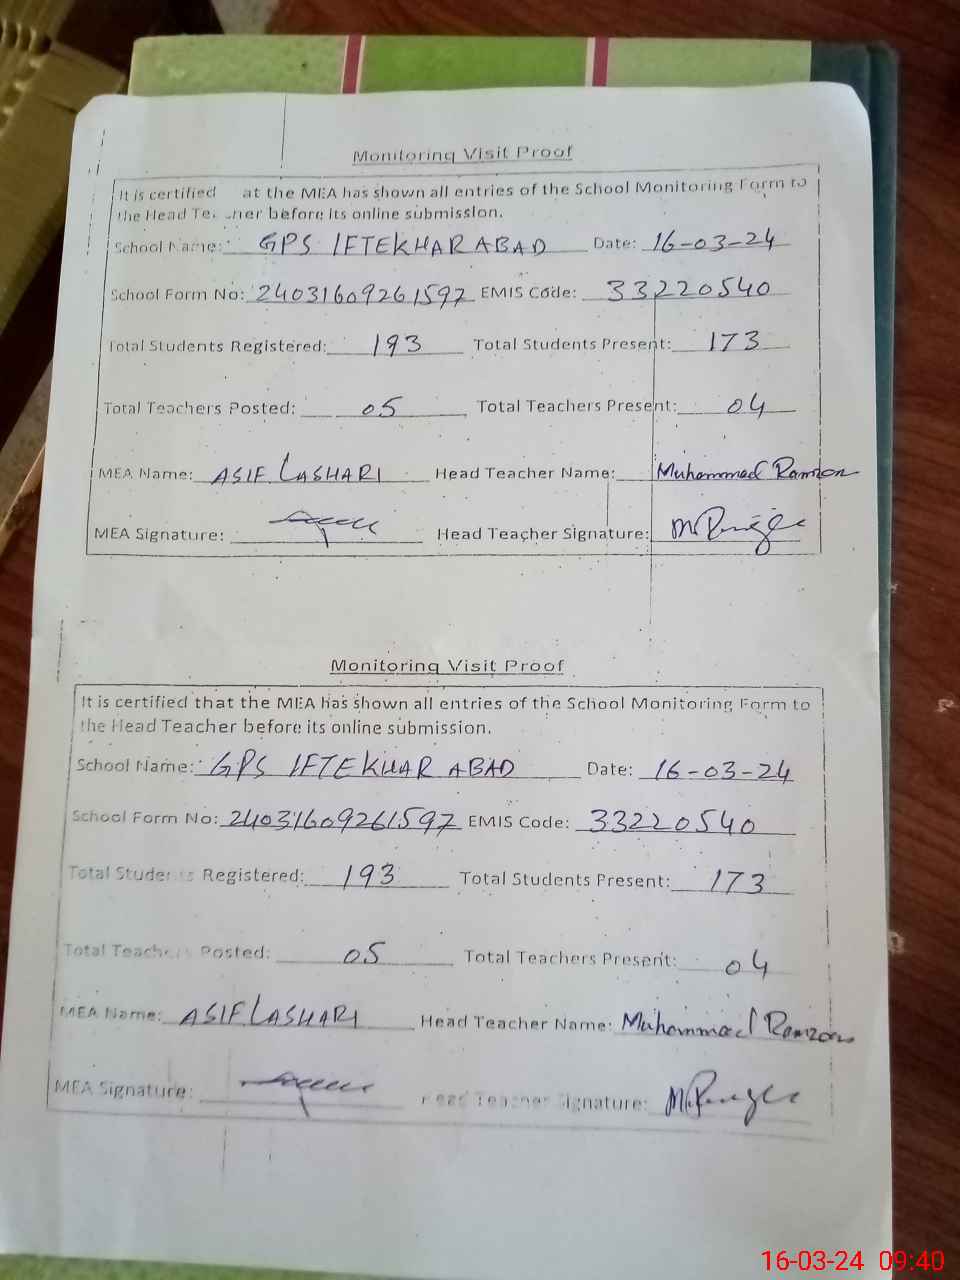 Monitoring Visit Proof
It is certified at the MEA has shown all entries of the School Monitoring Form to
the Head Te. .her before its online submission.
School Name: GPS IFTEKHAR ABAD Date: 16-03-24
School Form No: 24031609261597 EMIS Code: 33220540
Total Students Registered: 193 Total Students Present: 173
Total Teachers Posted: 05 Total Teachers Present: 04
MEA Name: ASIF LASHARI Head Teacher Name: Muhammad Ramzan
MEA Signature: Head Teacher Signature:
Monitoring Visit Proof
It is certified that the MEA has shown all entries of the School Monitoring Form to
the Head Teacher before its online submission.
School Name: GPS IFTEKHAR ABAD Date: 16-03-24
School Form No: 24031609261597 EMIS Code: 33220540
Total Students Registered: 193 Total Students Present: 173
Total Teachers Posted: 05 Total Teachers Present: 04
MEA Name: ASIF LASHARI Head Teacher Name: Muhammad Ramzan
MEA Signature: Head Teacher Signature:
16-03-24 09:40